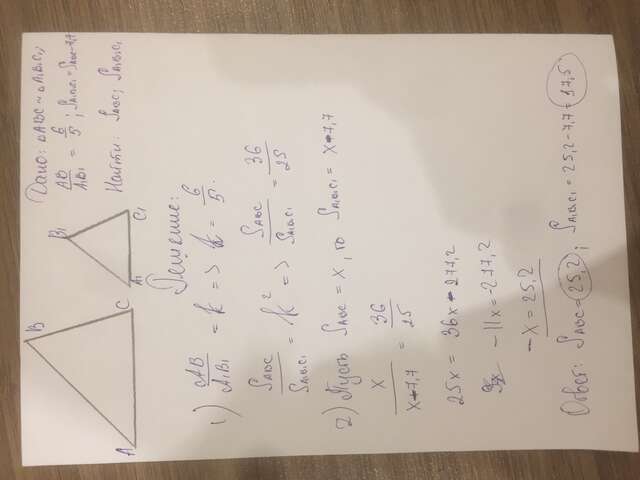 B
B₁
A
C
A₁
C₁
Дано: △ABC ~ △A₁B₁C₁,
AB/A₁B₁ = 6/5; S_A₁B₁C₁ = S_ABC - 7,7
Найти: S_ABC; S_A₁B₁C₁
Решение:
1) AB/A₁B₁ = k => k = 6/5.
S_ABC/S_A₁B₁C₁ = k² => S_ABC/S_A₁B₁C₁ = 36/25
2) Пусть S_ABC = x, то S_A₁B₁C₁ = x-7,7
x/x-7,7 = 36/25
25x = 36x - 277,2
-11x = -277,2
-x = 25,2
Ответ: S_ABC = 25,2; S_A₁B₁C₁ = 25,2-7,7 = 17,5